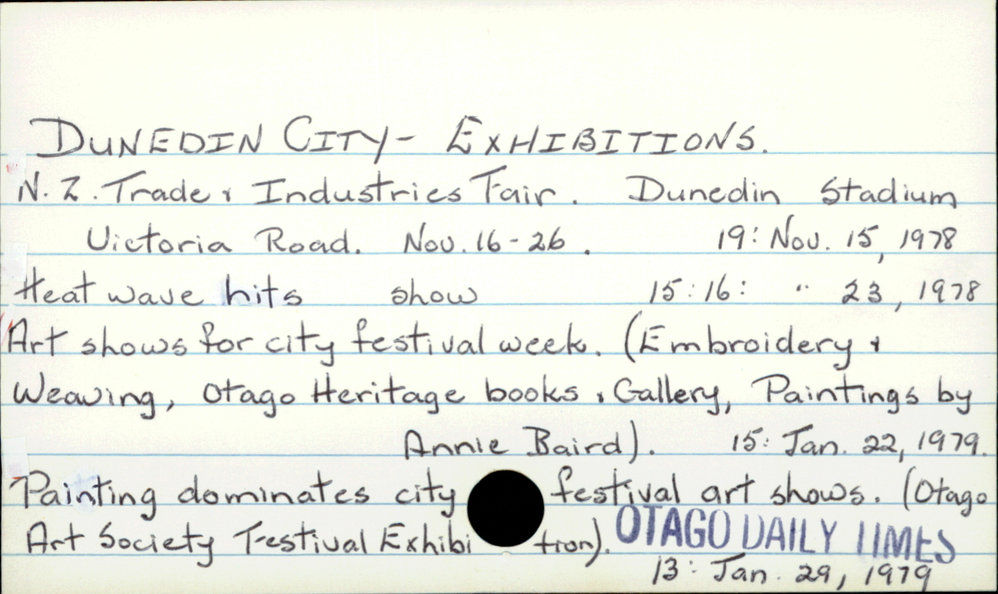 DUNEDIN CITY - EXHIBITIONS.
N.Z. Trade & Industries Fair. Dunedin Stadium
Victoria Road. Nov. 16-26. 19: Nov. 15, 1978
Heat wave hits show 15:16: " 23, 1978
Art shows for city festival week. (Embroidery &
Weaving, Otago Heritage books & Gallery, Paintings by
Annie Baird). 15: Jan. 22, 1979.
Painting dominates city festival art shows. (Otago
Art Society Festival Exhibition). OTAGO DAILY TIMES
13: Jan. 29, 1979